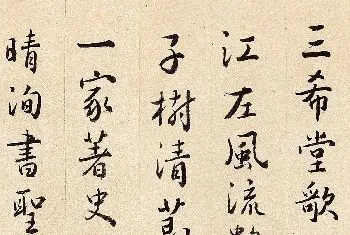 三希堂歌
江左風流
子樹清
一家著史
晴洵書聖